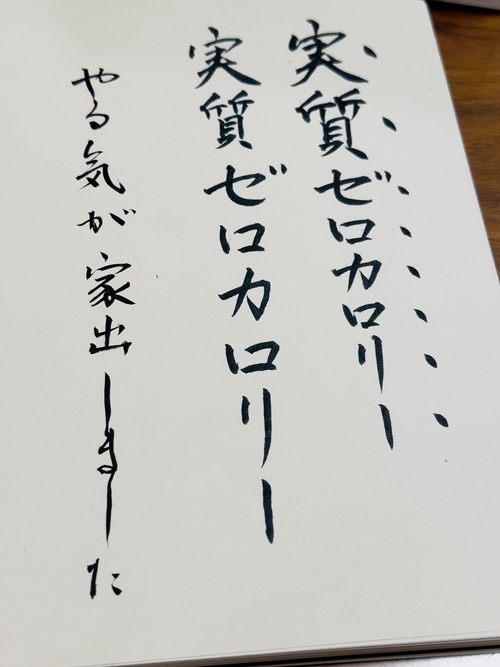 実質ゼロカロリー
実質ゼロカロリー
やる気が家出しました